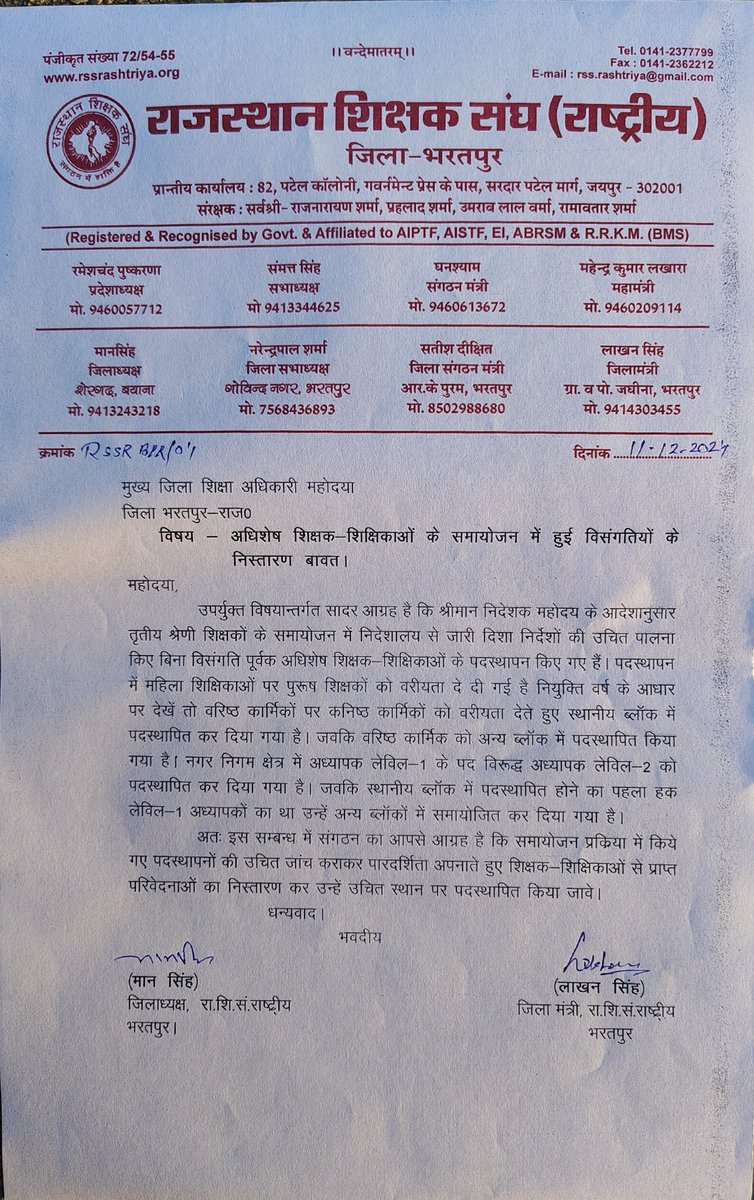 पंजीकृत संख्या 72/54-55
।।वन्देमातरम्।।
Tel. 0141-2377799
www.rssrashtriya.org
Fax : 0141-2362212
E-mail : rss.rashtriya@gmail.com
राजस्थान शिक्षक संघ
संगठन में शक्ति है
राजस्थान शिक्षक संघ (राष्ट्रीय)
जिला-भरतपुर
प्रान्तीय कार्यालय : 82, पटेल कॉलोनी, गवर्नमेन्ट प्रेस के पास, सरदार पटेल मार्ग, जयपुर - 302001
संरक्षक : सर्वश्री- राजनारायण शर्मा, प्रहलाद शर्मा, उमराव लाल वर्मा, रामावतार शर्मा
(Registered & Recognised by Govt. & Affiliated to AIPTF, AISTF, EI, ABRSM & R.R.K.M. (BMS)
रमेशचंद पुष्करणा
प्रदेशाध्यक्ष
मो. 9460057712
संमत्त सिंह
सभाध्यक्ष
मो 9413344625
घनश्याम
संगठन मंत्री
मो. 9460613672
महेन्द्र कुमार लखारा
महामंत्री
मो. 9460209114
मानसिंह
जिलाध्यक्ष
शेरगढ, बयाना
मो. 9413243218
नरेन्द्रपाल शर्मा
जिला सभाध्यक्ष
गोविन्द नगर, भरतपुर
मो. 7568436893
सतीश दीक्षित
जिला संगठन मंत्री
आर.के पुरम, भरतपुर
मो. 8502988680
लाखन सिंह
जिलामंत्री
ग्रा. व पो. जघीना, भरतपुर
मो. 9414303455
क्रमांक RSSR
दिनांक ..... 11-12-2024
मुख्य जिला शिक्षा अधिकारी महोदया
जिला भरतपुर–राज0
विषय – अधिशेष शिक्षक–शिक्षिकाओं के समायोजन में हुई विसंगतियों के
निस्तारण बावत।
महोदया,
उपर्युक्त विषयान्तर्गत सादर आग्रह है कि श्रीमान निदेशक महोदय के आदेशानुसार
तृतीय श्रेणी शिक्षकों के समायोजन में निदेशालय से जारी दिशा निर्देशों की उचित पालना
किए बिना विसंगति पूर्वक अधिशेष शिक्षक–शिक्षिकाओं के पदस्थापन किए गए हैं। पदस्थापन
में महिला शिक्षिकाओं पर पुरूष शिक्षकों को वरीयता दे दी गई है नियुक्ति वर्ष के आधार
पर देखें तो वरिष्ठ कार्मिकों पर कनिष्ठ कार्मिकों को वरीयता देते हुए स्थानीय ब्लॉक में
पदस्थापित कर दिया गया है। जवकि वरिष्ठ कार्मिक को अन्य ब्लॉक में पदस्थापित किया
गया है। नगर निगम क्षेत्र में अध्यापक लेविल–1 के पद विरूद्ध अध्यापक लेविल–2 को
पदस्थापित कर दिया गया है। जवकि स्थानीय ब्लॉक में पदस्थापित होने का पहला हक
लेविल–1 अध्यापकों का था उन्हें अन्य ब्लॉकों में समायोजित कर दिया गया है।
अतः इस सम्बन्ध में संगठन का आपसे आग्रह है कि समायोजन प्रकिया में किये
गए पदस्थापनों की उचित जांच कराकर पारदर्शिता अपनाते हुए शिक्षक–शिक्षिकाओं से प्राप्त
परिवेदनाओं का निस्तारण कर उन्हें उचित स्थान पर पदस्थापित किया जावे।
धन्यवाद।
भवदीय
(मान सिंह)
जिलाध्यक्ष, रा.शि.सं.राष्ट्रीय
भरतपुर।
(लाखन सिंह)
जिला मंत्री, रा.शि.सं.राष्ट्रीय
भरतपुर